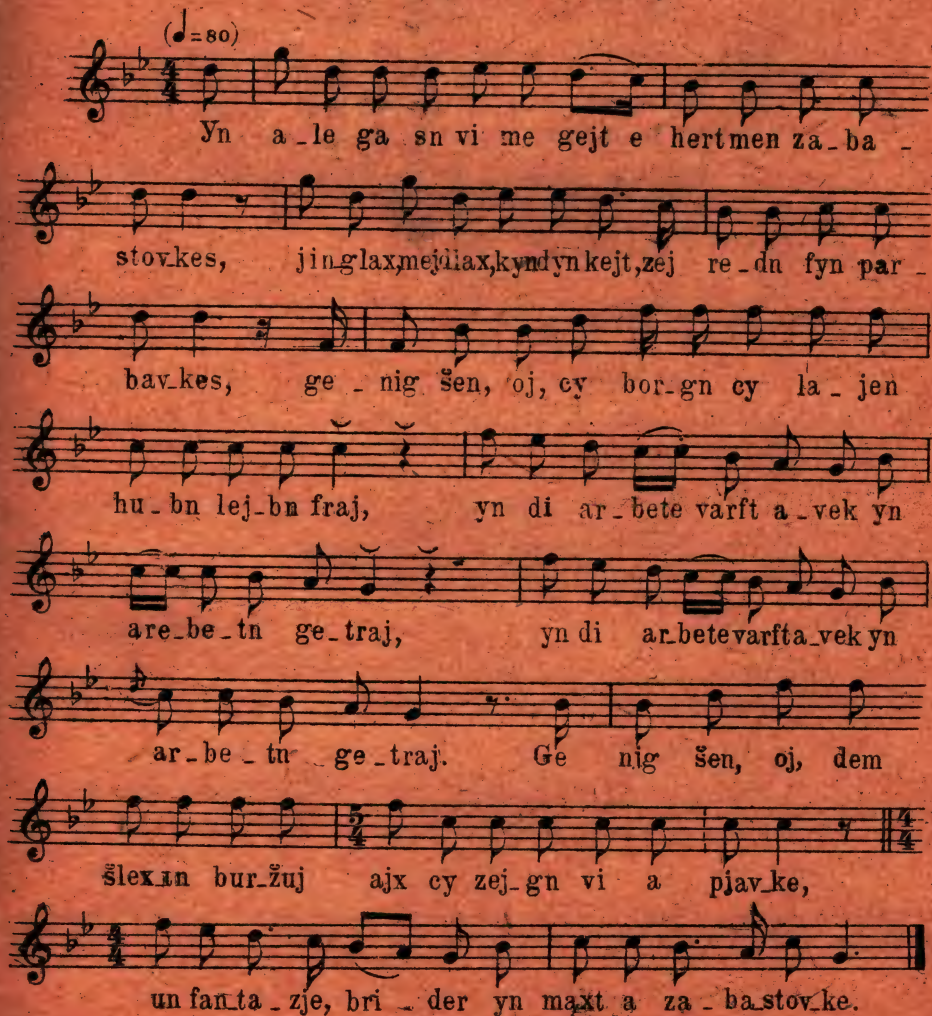 (♩=80)
Yn a_le ga sn vi me gejt e hertmen za_ba_
stov_kes, jin_glax,mejdlax,kyndynkejt,zej re_dn fyn par_
bav_kes, ge_nig šen, oj, cy bor_gn cy la_jen
hu_bn lej_bn fraj, yn di ar_bete varft a_vek yn
are_be_tn ge_traj, yn di ar_betevarfta_vek yn
ar_be_tn ge_traj. Ge nig šen, oj, dem
šlex_tn bur_žuj ajx cy zej_gn vi a pjav_ke,
un fan_ta_zje, bri_der yn maxt a za_ba_stov_ke.